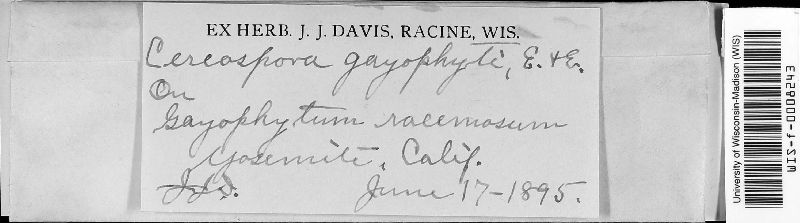 EX HERB. J. J. DAVIS, RACINE, WIS.
Cercospora gayophyti, E. & E.
On
Gayophytum racemosum
Yosemite, Calif.
J.J.D. June 17-1895.
University of Wisconsin-Madison (WIS)
WIS-f-0008943